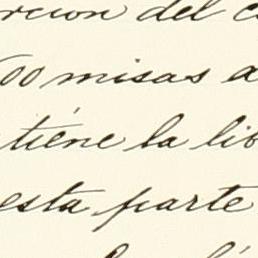 rcion del c
500 misas a
tiene la lib
esta parte